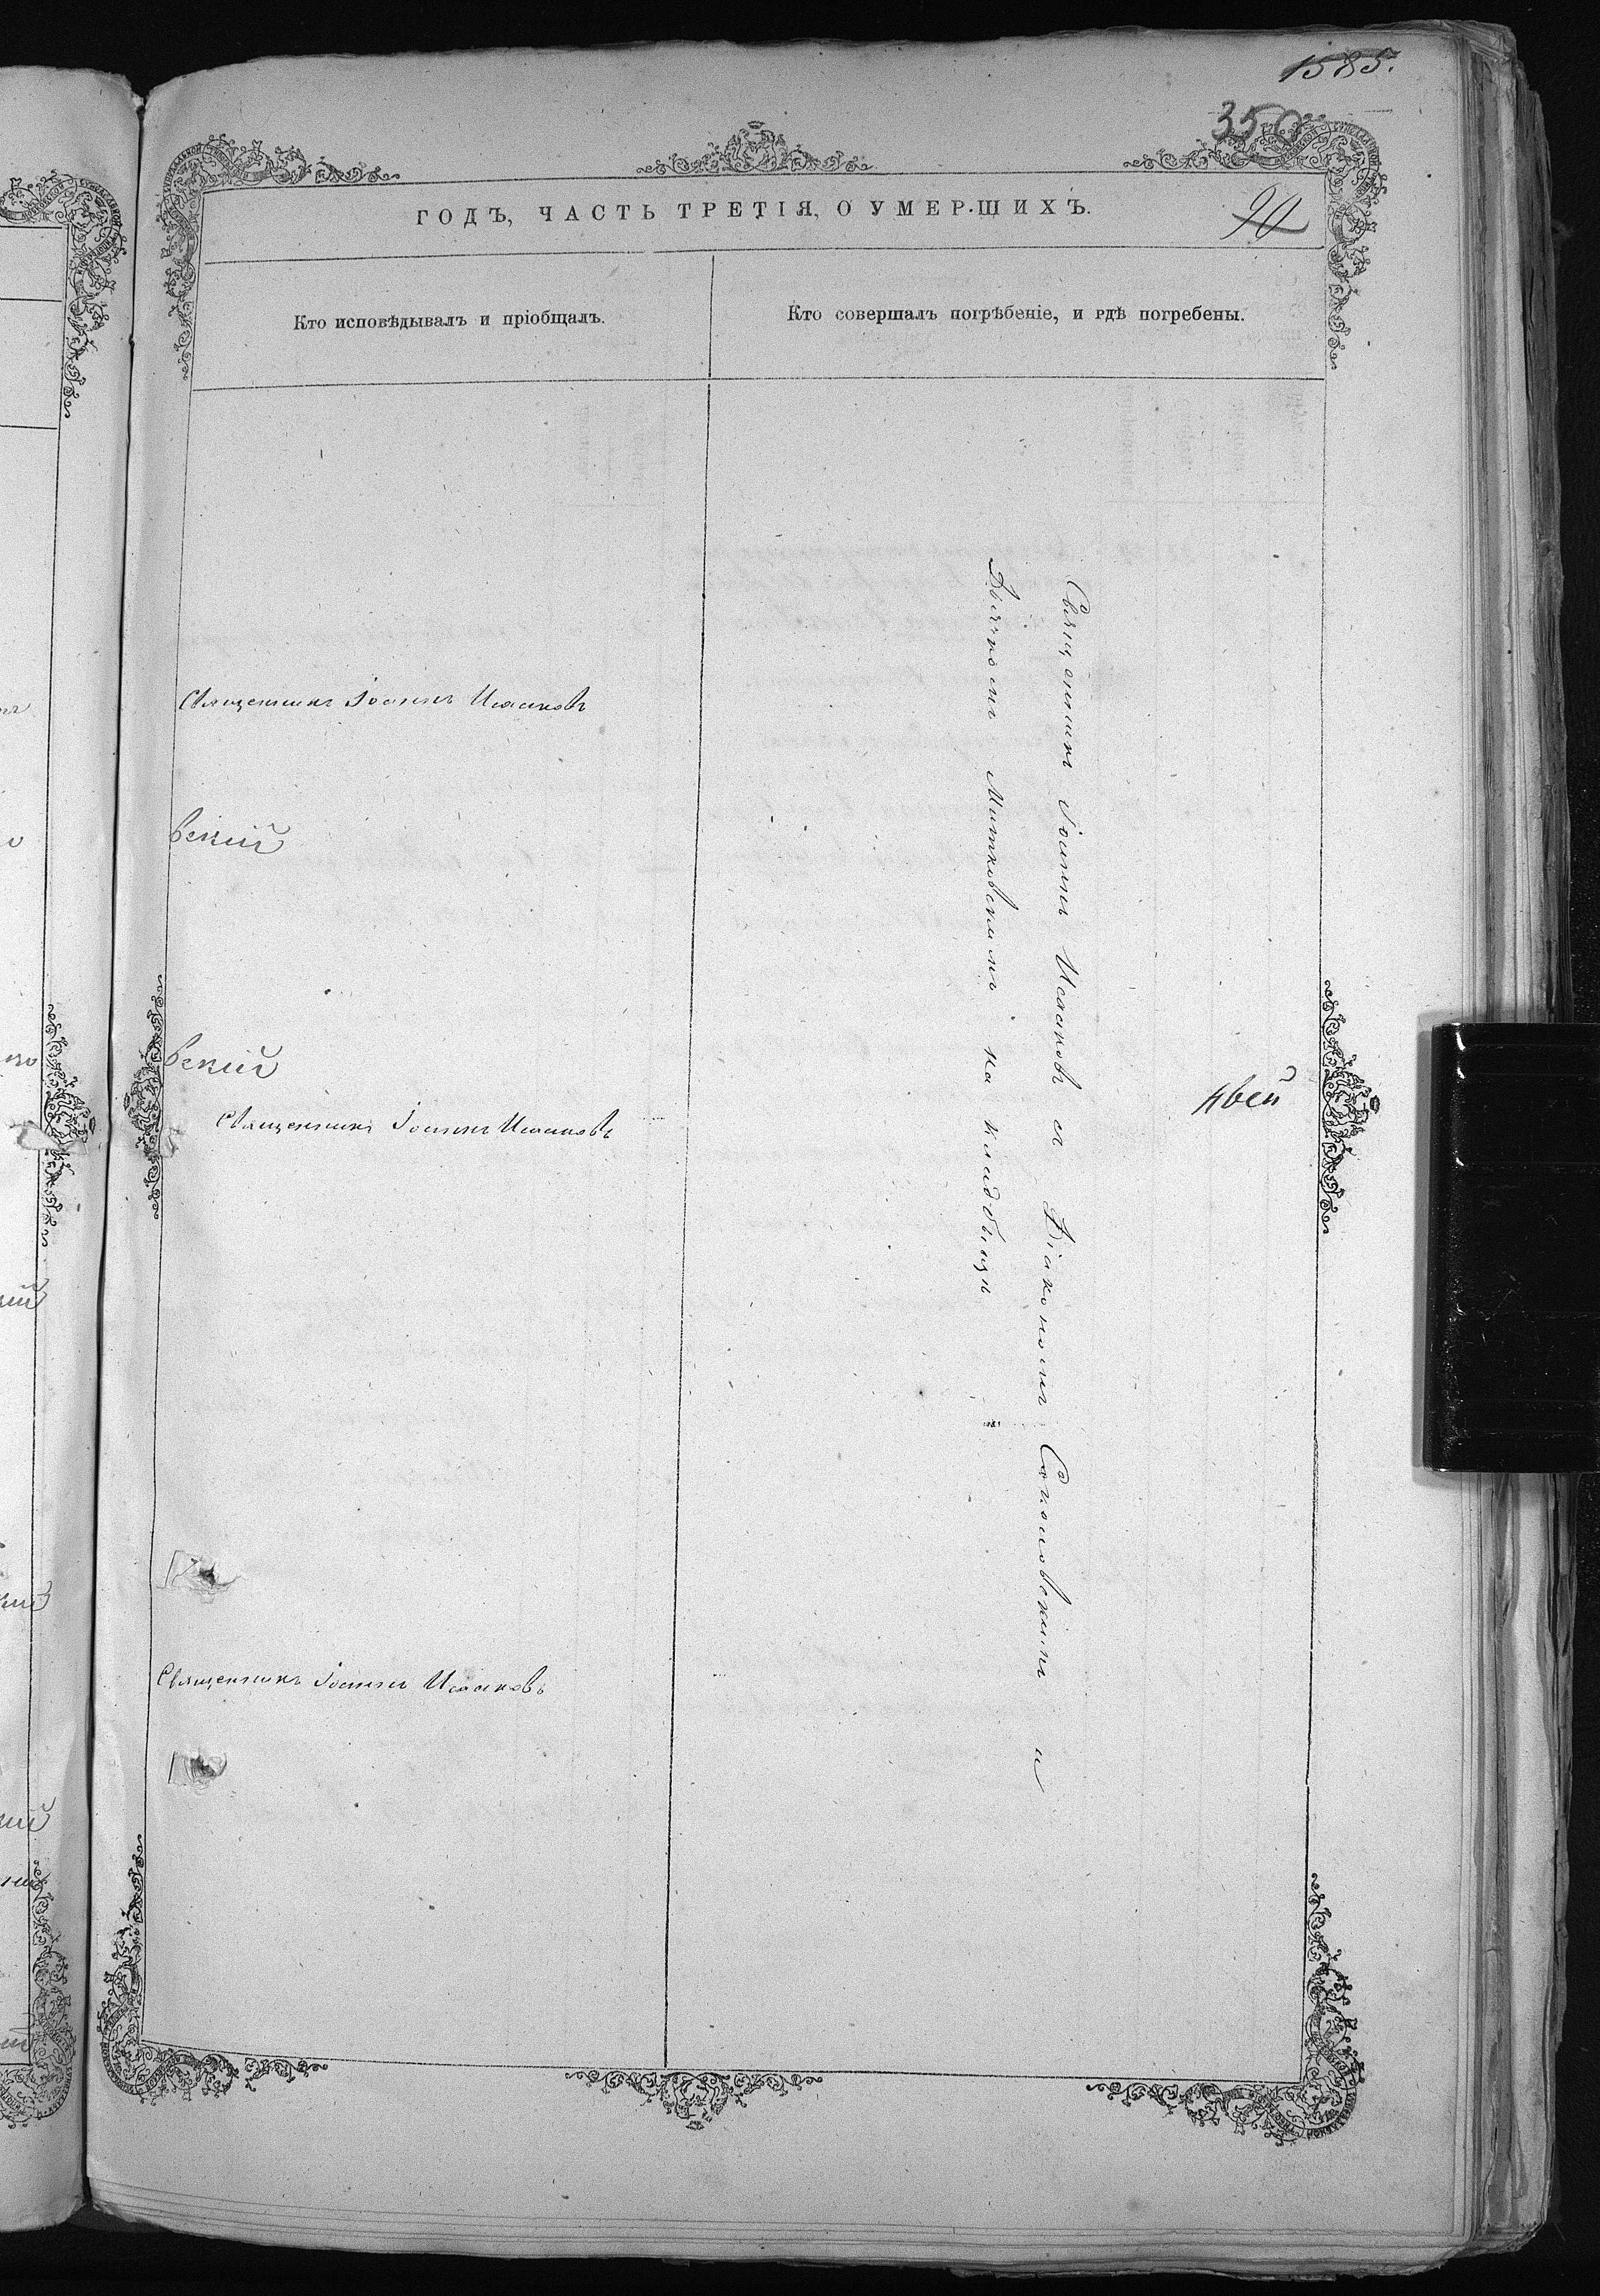 1585.
350
90
ГОДЪ, ЧАСТЬ ТРЕТІЯ, О УМЕРШИХЪ.
Кто исповѣдывалъ и пріобщалъ.
Кто совершалъ погрѣбеніе, и гдѣ погребены.
Священникъ Іоаннъ Исааковъ
вскій
вскій
Священникъ Іоаннъ Исааковъ
Священникъ Іоаннъ Исааковъ
Священникъ Іоаннъ Исааковъ съ Діакономъ Соколовскимъ и
Дьячкомъ Митковскимъ на кладбищѣ